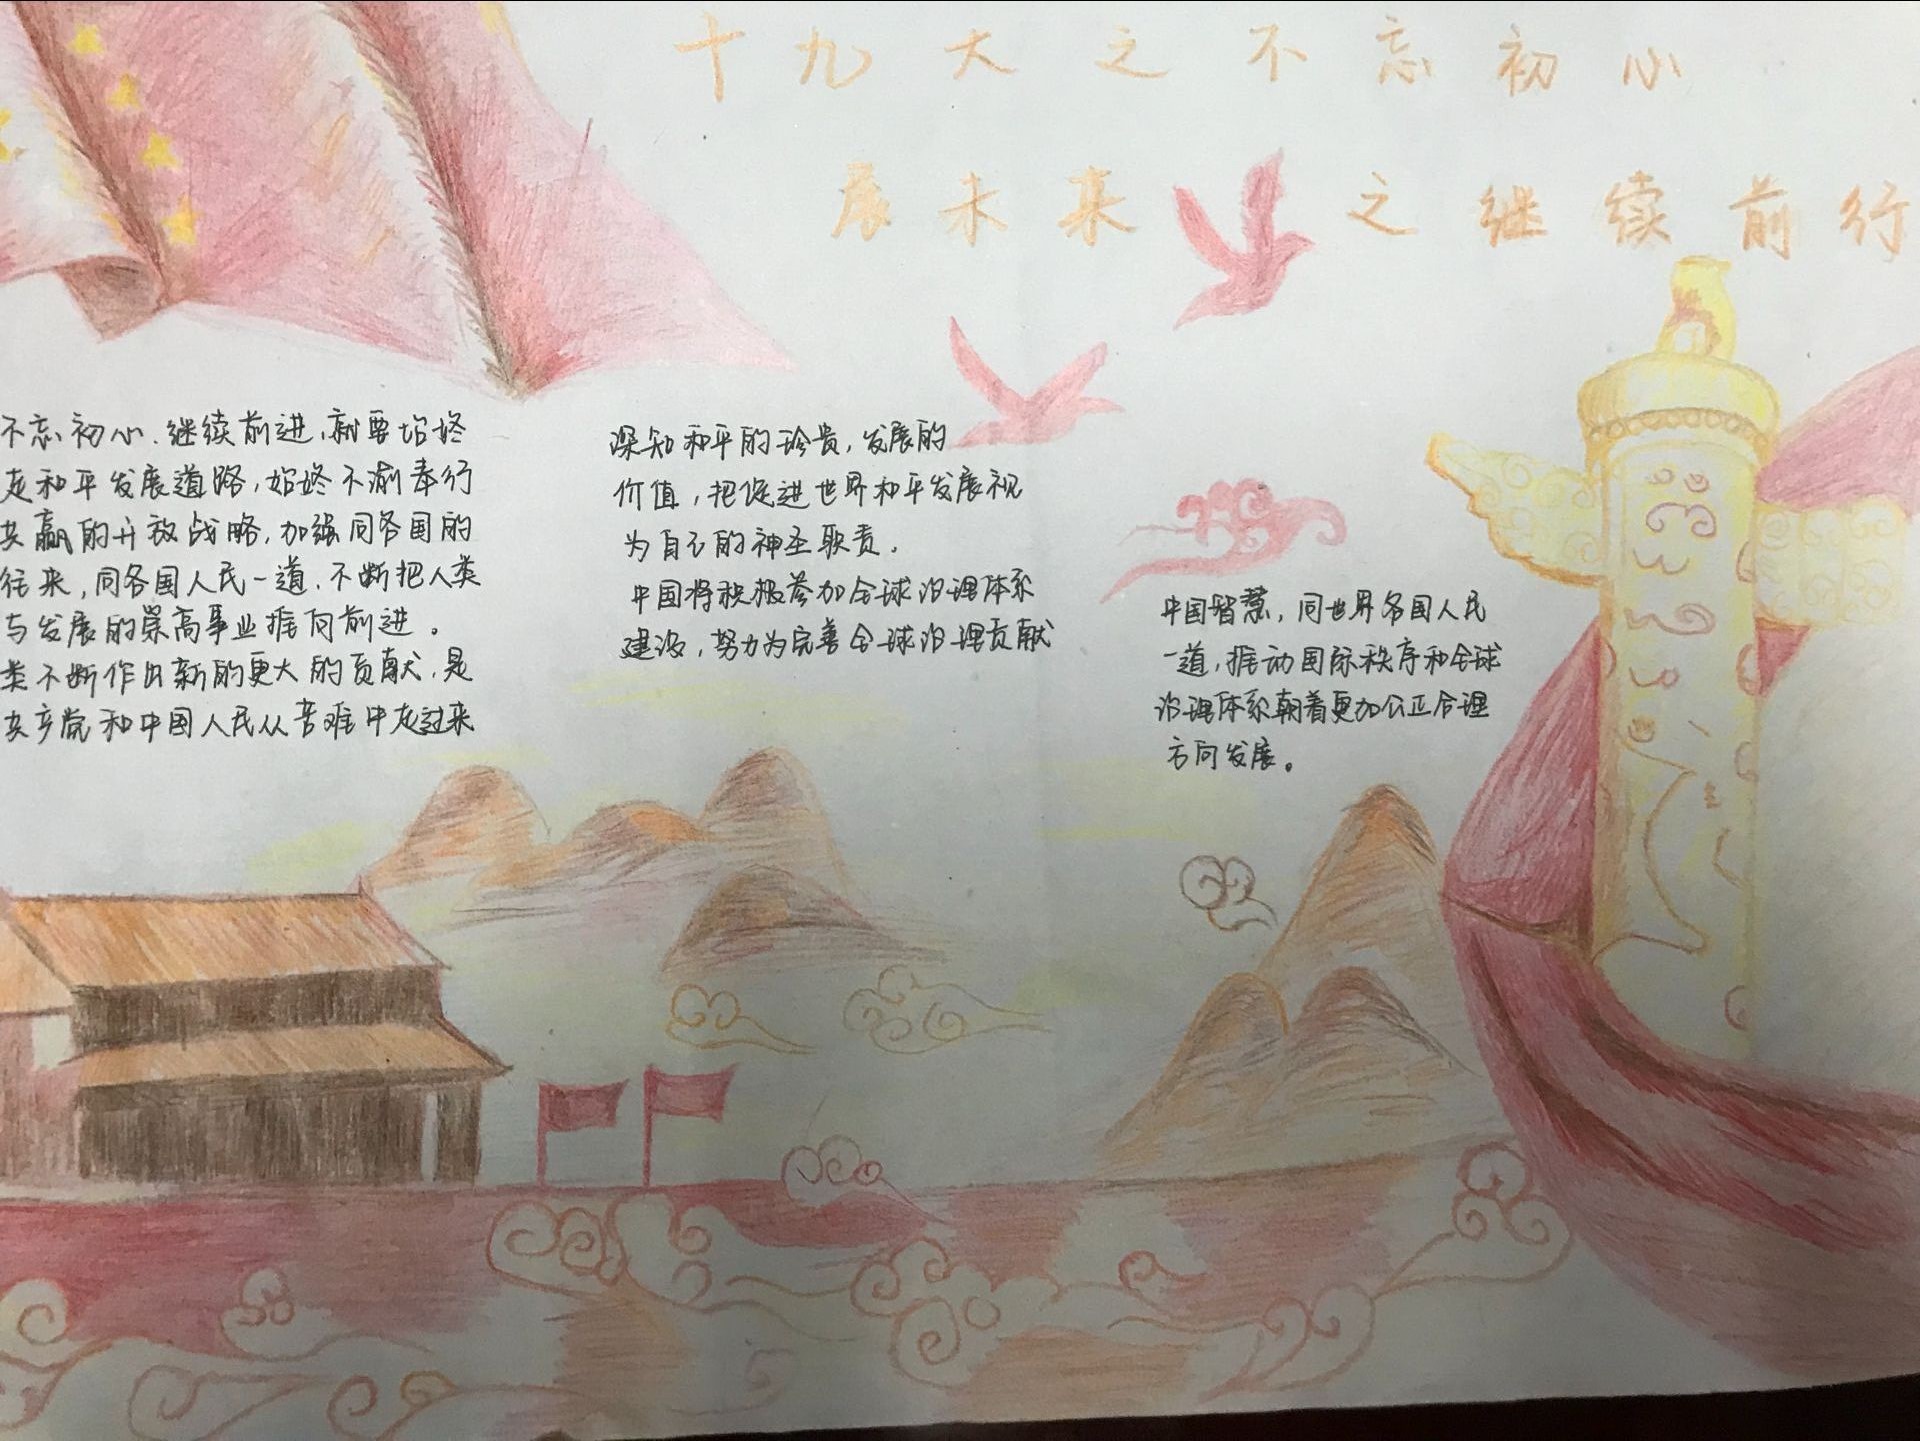 十九大之不忘初心
展未来之继续前行
不忘初心、继续前进,就要始终
走和平发展道路,始终不渝奉行
共赢的开放战略,加强同各国的
往来,同各国人民一道,不断把人类
与发展的崇高事业推向前进。
类不断作出新的更大的贡献,是
共产党和中国人民从苦难中走过来
深知和平的珍贵,发展的
价值,把促进世界和平发展视
为自己的神圣职责.
中国将积极参加全球治理体系
建设,努力为完善全球治理贡献
中国智慧,同世界各国人民
一道,推动国际秩序和全球
治理体系朝着更加公正合理
方向发展。